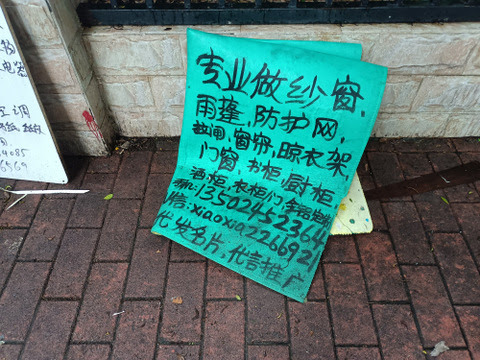 专业做纱窗,
雨蓬,防护网,
拉闸,窗帘,晾衣架,
门窗,书柜,厨柜
酒柜,衣柜门
13502452364
微信:xiaoxia2266921
代发名片,代言推广
空调
4085
6569